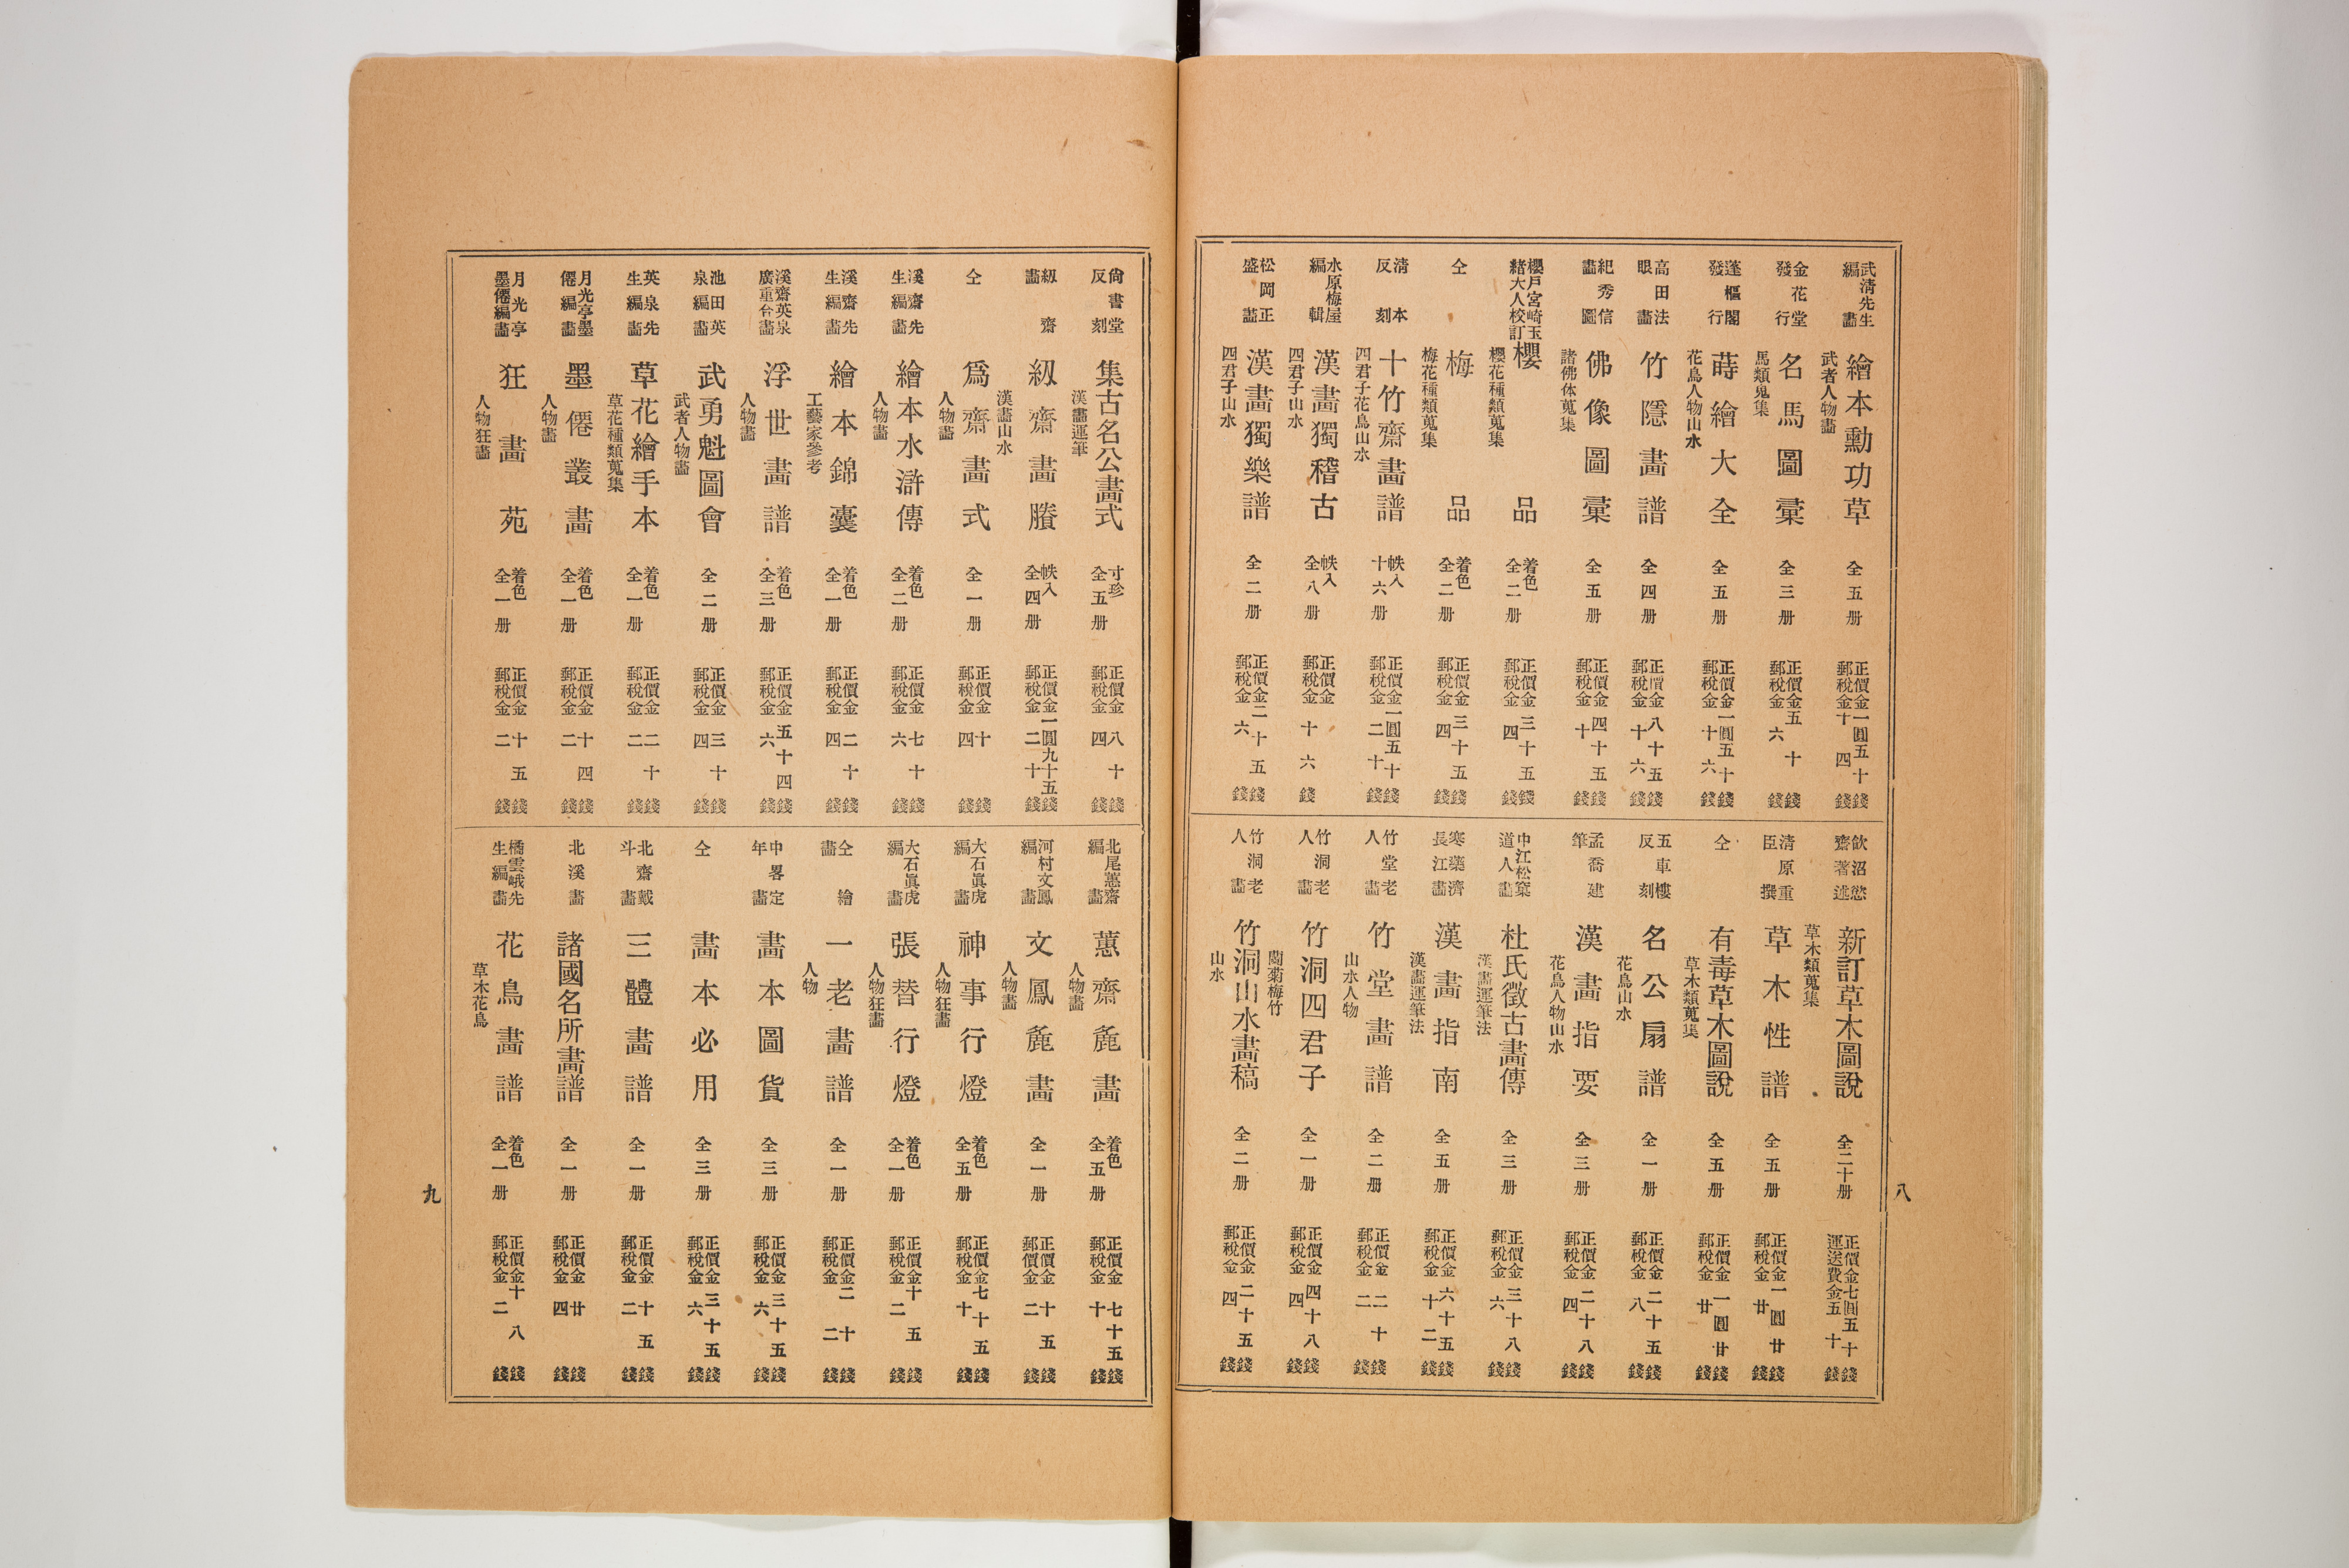 武清先生編畵 繪本勳功草 武者人物畵 全五册 正價金一圓五十錢 郵稅金十四錢
金花堂發行 名馬圖彙 馬類蒐集 全三册 正價金五十錢 郵稅金六錢
蓬樞閣發行 蒔繪大全 花鳥人物山水 全五册 正價金一圓五十錢 郵稅金十六錢
高田法眼畵 竹隱畵譜 全四册 正價金八十五錢 郵稅金十六錢
紀秀信畵圖 佛像圖彙 諸佛体蒐集 全五册 正價金四十五錢 郵稅金十錢
櫻戶宮崎玉緒大人校訂 櫻品 櫻花種類蒐集 着色全二册 正價金三十五錢 郵稅金四錢
仝 梅品 梅花種類蒐集 着色全二册 正價金三十五錢 郵稅金四錢
清本反刻 十竹齋畵譜 四君子花鳥山水 帙入十六册 正價金一圓五十錢 郵稅金二十錢
水原梅屋編輯 漢畵獨稽古 四君子山水 帙入全八册 正價金 郵稅金十六錢
松岡正盛畵 漢畵獨樂譜 四君子山水 全二册 正價金二十五錢 郵稅金六錢
飮沼慾齋著述 新訂草木圖說 草木類蒐集 全二十册 正價金七圓五十錢 運送費金五十錢
清原重臣撰 草木性譜 全五册 正價金一圓廿錢 郵稅金廿錢
仝 有毒草木圖說 草木類蒐集 全五册 正價金一圓廿錢 郵稅金廿錢
五車樓反刻 名公扇譜 花鳥山水 全一册 正價金二十五錢 郵稅金八錢
孟喬建筆 漢畵指要 花鳥人物山水 全三册 正價金二十八錢 郵稅金四錢
中江松窠道人畵 杜氏徵古畵傳 漢畵運筆法 全三册 正價金三十八錢 郵稅金六錢
寒藥濟長江畵 漢畵指南 漢畵運筆法 全五册 正價金六十五錢 郵稅金十二錢
竹堂老人畵 竹堂畵譜 山水人物 全二册 正價金二十錢 郵稅金二錢
竹洞老人畵 竹洞四君子 蘭菊梅竹 全一册 正價金四十八錢 郵稅金四錢
竹洞老人畵 竹洞山水畵稿 山水 全二册 正價金二十五錢 郵稅金四錢
八
尙書堂反刻 集古名公畵式 漢畵運筆 寸珍全五册 正價金八十錢 郵稅金四錢
紉齋畵 紉齋畵賸 漢畵山水 帙入全四册 正價金一圓九十五錢 郵稅金二十錢
仝 爲齋畵式 人物畵 全一册 正價金十錢 郵稅金四錢
溪齋先生編畵 繪本水滸傳 人物畵 着色全二册 正價金七十錢 郵稅金六錢
溪齋先生編畵 繪本錦囊 工藝家參考 着色全一册 正價金二十錢 郵稅金四錢
溪齋英泉廣重合畵 浮世畵譜 人物畵 着色全三册 正價金五十四錢 郵稅金六錢
池田英泉編畵 武勇魁圖會 武者人物畵 全二册 正價金三十錢 郵稅金四錢
英泉先生編畵 草花繪手本 草花種類蒐集 着色全一册 正價金二十錢 郵稅金二錢
月光亭墨僊編畵 墨僊叢畵 人物畵 着色全一册 正價金十四錢 郵稅金二錢
月光亭墨僊編畵 狂畵苑 人物狂畵 着色全一册 正價金十五錢 郵稅金二錢
北尾蕙齋編畵 蕙齋麁畵 人物畵 着色全五册 正價金七十五錢 郵稅金十錢
河村文鳳編畵 文鳳麁畵 人物畵 全一册 正價金十五錢 郵稅金二錢
大石眞虎編畵 神事行燈 人物狂畵 着色全五册 正價金七十五錢 郵稅金十錢
大石眞虎編畵 張替行燈 人物狂畵 着色全一册 正價金十五錢 郵稅金二錢
仝繪畵 一老畵譜 人物 全一册 正價金二十錢 郵稅金二錢
中畧定年畵 畵本圖貨 全三册 正價金三十五錢 郵稅金六錢
仝 畵本必用 全三册 正價金三十五錢 郵稅金六錢
北齋戴斗畵 三體畵譜 全一册 正價金十五錢 郵稅金二錢
北溪畵 諸國名所畵譜 全一册 正價金廿錢 郵稅金四錢
橘雲峨先生編畵 花鳥畵譜 草木花鳥 着色全一册 正價金十八錢 郵稅金二錢
九